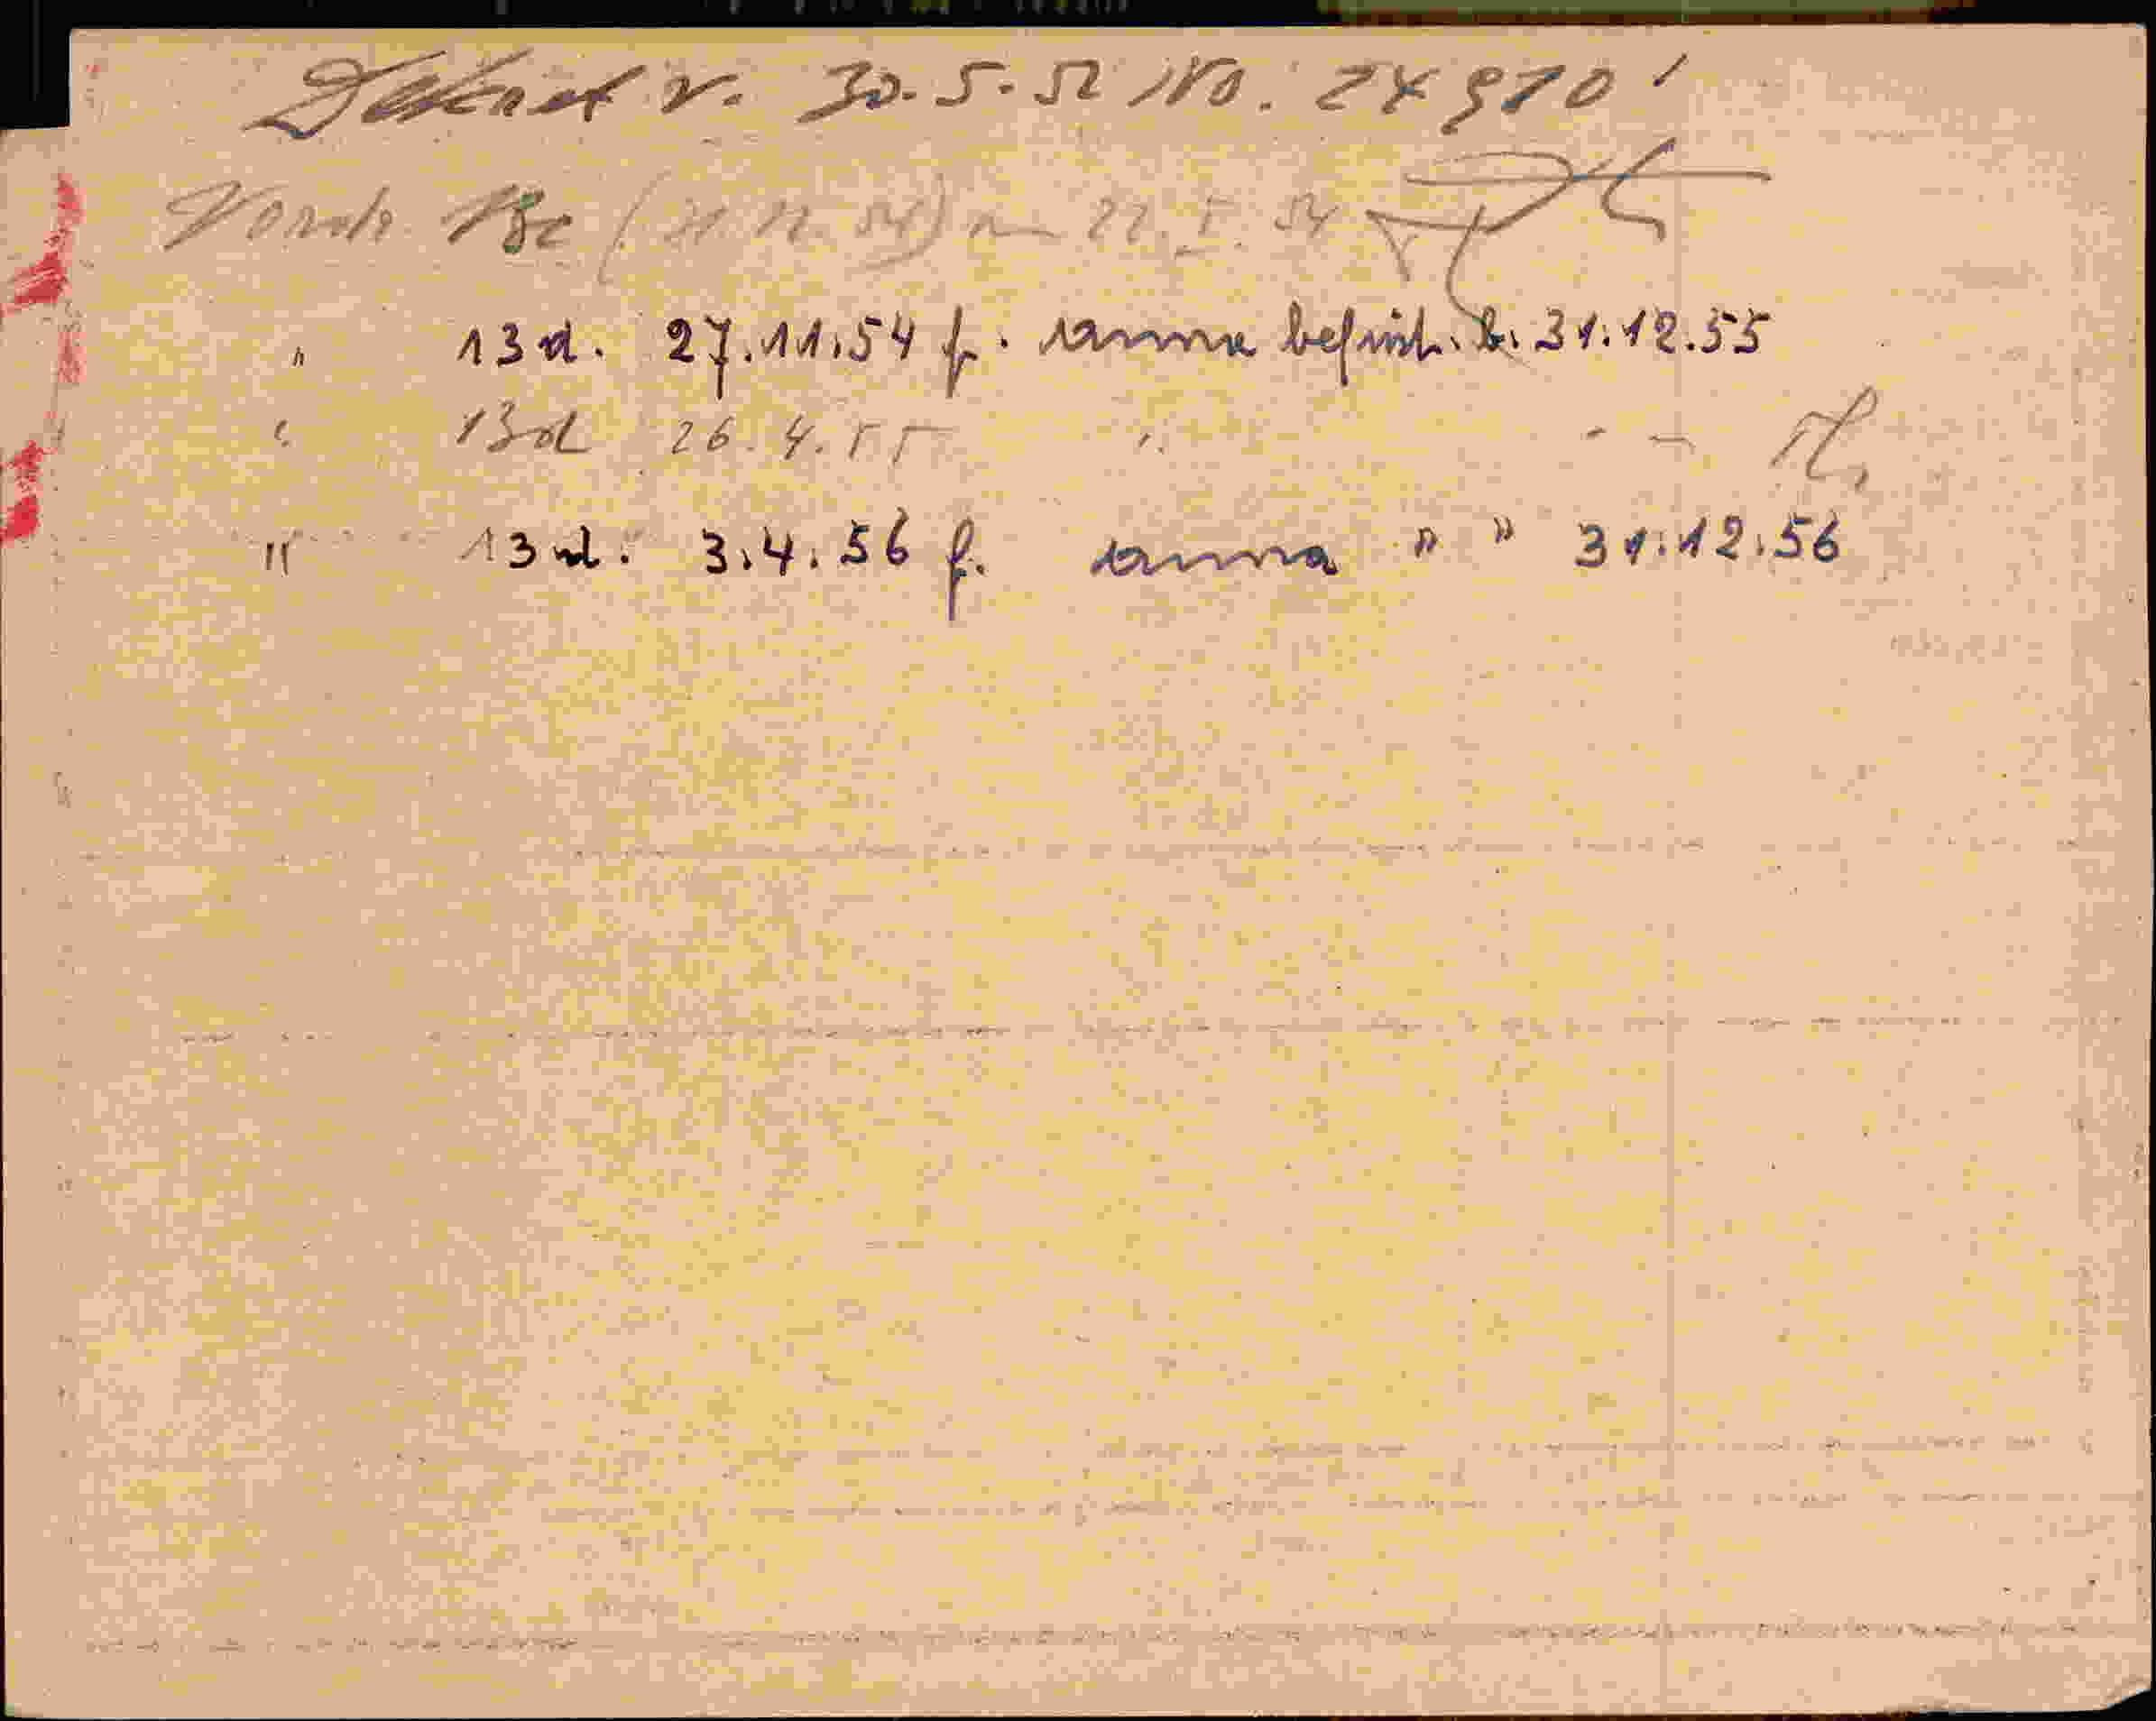 Dekret v. 30.5.52 No. 24910
13c (31.12.54) 22.5.54
" 13d. 27.11.54 f. befrist. b. 31.12.55
" 13d 26.4.55 " - -
" 13d. 3.4.56 f. " " 31.12.56